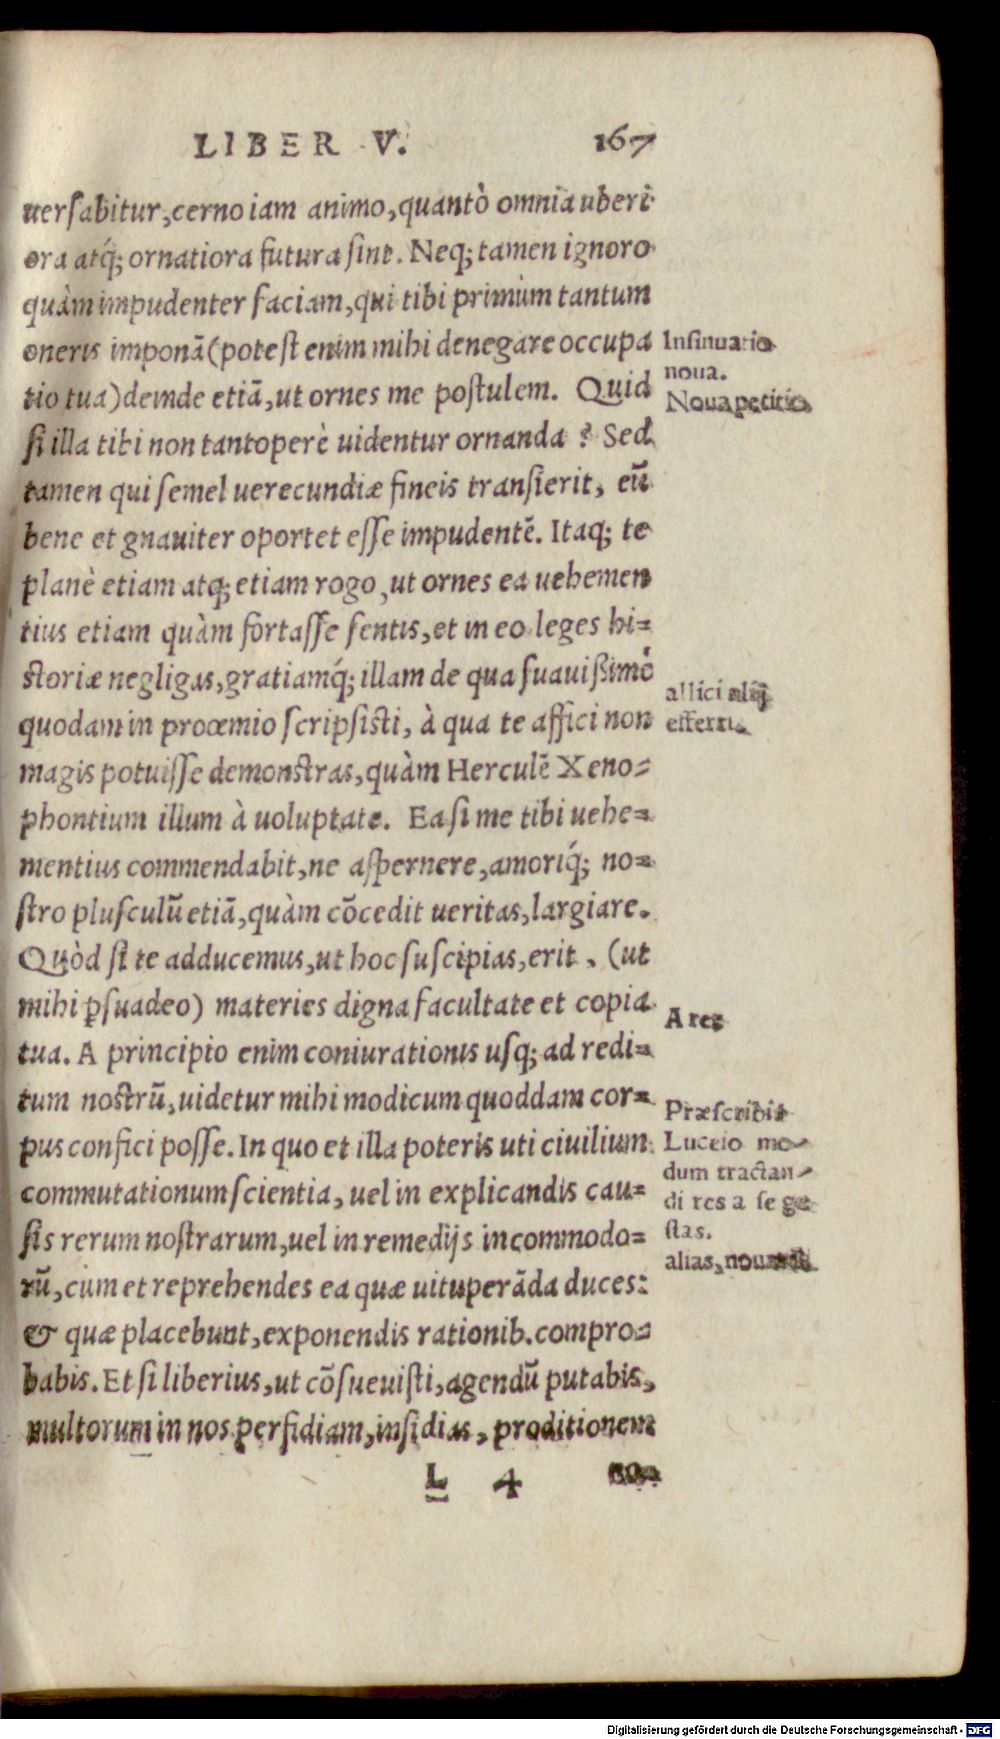 LIBER V. 167
uersabitur, cerno iam animo, quantò omnia uberi
ora atq́; ornatiora futura sint. Neq; tamen ignoro
quàm impudenter faciam, qui tibi primùm tantum
oneris imponã (potest enim mihi denegare occupa
tio tua) deinde etiã, ut ornes me postulem. Quid
si illa tibi non tantoperè uidentur ornanda? Sed
tamen qui semel uerecundiæ fineis transierit, eũ
bene et gnauiter oportet esse impudentẽ. Itaq; te
planè etiam atq; etiam rogo, ut ornes ea uehemen
tius etiam quàm fortasse sentis, et in eo leges hi=
storiæ negligas, gratiamq́; illam de qua suauißimè
quodam in proœmio scripsisti, à qua te affici non
magis potuisse demonstras, quàm Herculẽ Xeno=
phontium illum à uoluptate. Ea si me tibi uehe=
mentius commendabit, ne aspernere, amoriq́; no=
stro plusculũ etiã, quàm cõcedit ueritas, largiare.
Quòd si te adducemus, ut hoc suscipias, erit, (ut
mihi ꝑsuadeo) materies digna facultate et copia
tua. A principio enim coniurationis usq; ad redi=
tum nostrũ, uidetur mihi modicum quoddam cor=
pus confici posse. In quo et illa poteris uti ciuilium
commutationum scientia, uel in explicandis cau=
sis rerum nostrarum, uel in remedijs incommodo=
rũ, cùm et reprehendes ea quæ uituperãda duces:
& quæ placebunt, exponendis rationib. compro=
babis. Et si liberius, ut cõsueuisti, agendũ putabis,
multorum in nos perfidiam, insidias, proditionem
L 4
Insinuatio
noua.
Noua petitio
allici alij
efferri.
A re
Præscribit
Lucceio mo=
dum tractan=
di res a se ge
stas.
alias,
Digitalisierung gefördert durch die Deutsche Forschungsgemeinschaft - DFG